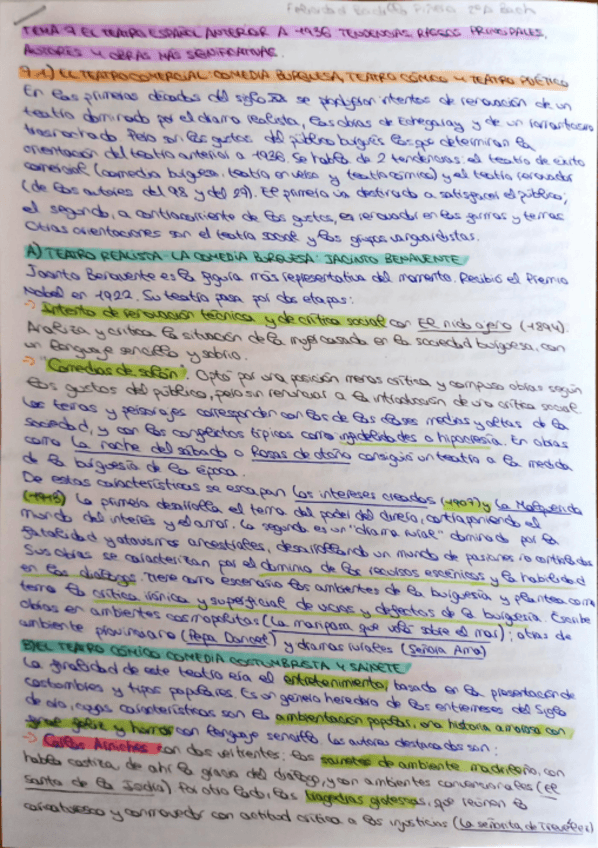 TEMA 7 EL TEATRO ESPAÑOL ANTERIOR A 1936. TENDENCIAS, RASGOS PRINCIPALES,
AUTORES Y OBRAS MÁS SIGNIFICATIVAS.
7.1) EL TEATRO COMERCIAL: COMEDIA BURGUESA, TEATRO CÓMICO Y TEATRO POÉTICO
En las primeras décadas del siglo XX se produjeron intentos de renovación de un
teatro dominado por el drama realista, las obras de Echegaray y de un romanticismo
trasnochado. Pero son los gustos del público burgués los que determinan la
orientación del teatro anterior a 1936. Se habla de 2 tendencias: el teatro de éxito
comercial (comedia burguesa, teatro en verso y teatro cómico) y el teatro renovador
(de los autores del 98 y del 27). El primero va destinado a satisfacer al público;
el segundo, a contracorriente de los gustos, es renovador en las formas y temas.
Otras orientaciones son el teatro social y los grupos vanguardistas.
A) TEATRO REALISTA: LA COMEDIA BURGUESA: JACINTO BENAVENTE
Jacinto Benavente es la figura más representativa del momento. Recibió el Premio
Nobel en 1922. Su teatro pasa por dos etapas:
→ Intento de renovación técnica y de crítica social con El nido ajeno (1894).
Analiza y critica la situación de la mujer casada en la sociedad burguesa, con
un lenguaje sencillo y sobrio.
→ "Comedias de salón". Optó por una posición menos crítica y compuso obras según
los gustos del público, pero sin renunciar a la introducción de una crítica social.
Los temas y personajes corresponden con los de las clases medias y altas de la
sociedad, y con los conflictos típicos como infidelidades o hipocresía. En obras
como La noche del sábado o Rosas de otoño consiguió un teatro a la medida
de la burguesía de la época.
De estas características se escapan Los intereses creados (1907) y La Malquerida
(1913). La primera desarrolla el tema del poder del dinero, contraponiendo el
mundo del interés y el amor. La segunda es un "drama rural" dominado por la
fatalidad y atavismos ancestrales, desarrollando un mundo de pasiones incontroladas
Sus obras se caracterizan por el dominio de los recursos escénicos y la habilidad
en los diálogos. Tiene como escenario los ambientes de la burguesía y plantea como
tema la crítica irónica y superficial de vicios y defectos de la burguesía. Escribe
obras en ambientes cosmopolitas (La mariposa que voló sobre el mar); otras de
ambiente provinciano (Pepa Doncel) y dramas rurales (Señora Ama)
B) EL TEATRO CÓMICO: COMEDIA COSTUMBRISTA Y SAINETE
La finalidad de este teatro era el entretenimiento, basado en la presentación de
costumbres y tipos populares. Es un género heredero de los entremeses del Siglo
de Oro, cuyas características son la ambientación popular, una historia amorosa con
final feliz y humor con lenguaje sencillo. Los autores destacados son:
→ Carlos Arniches con dos vertientes: los sainetes de ambiente madrileño, con
habla castiza, de ahí la gracia del diálogo, y con ambientes convencionales (El
Santo de la Isidra) Por otro lado, las tragedias grotescas, que reúnen lo
caricaturesco y conmovedor con actitud crítica a las injusticias (La señorita de Trevélez)